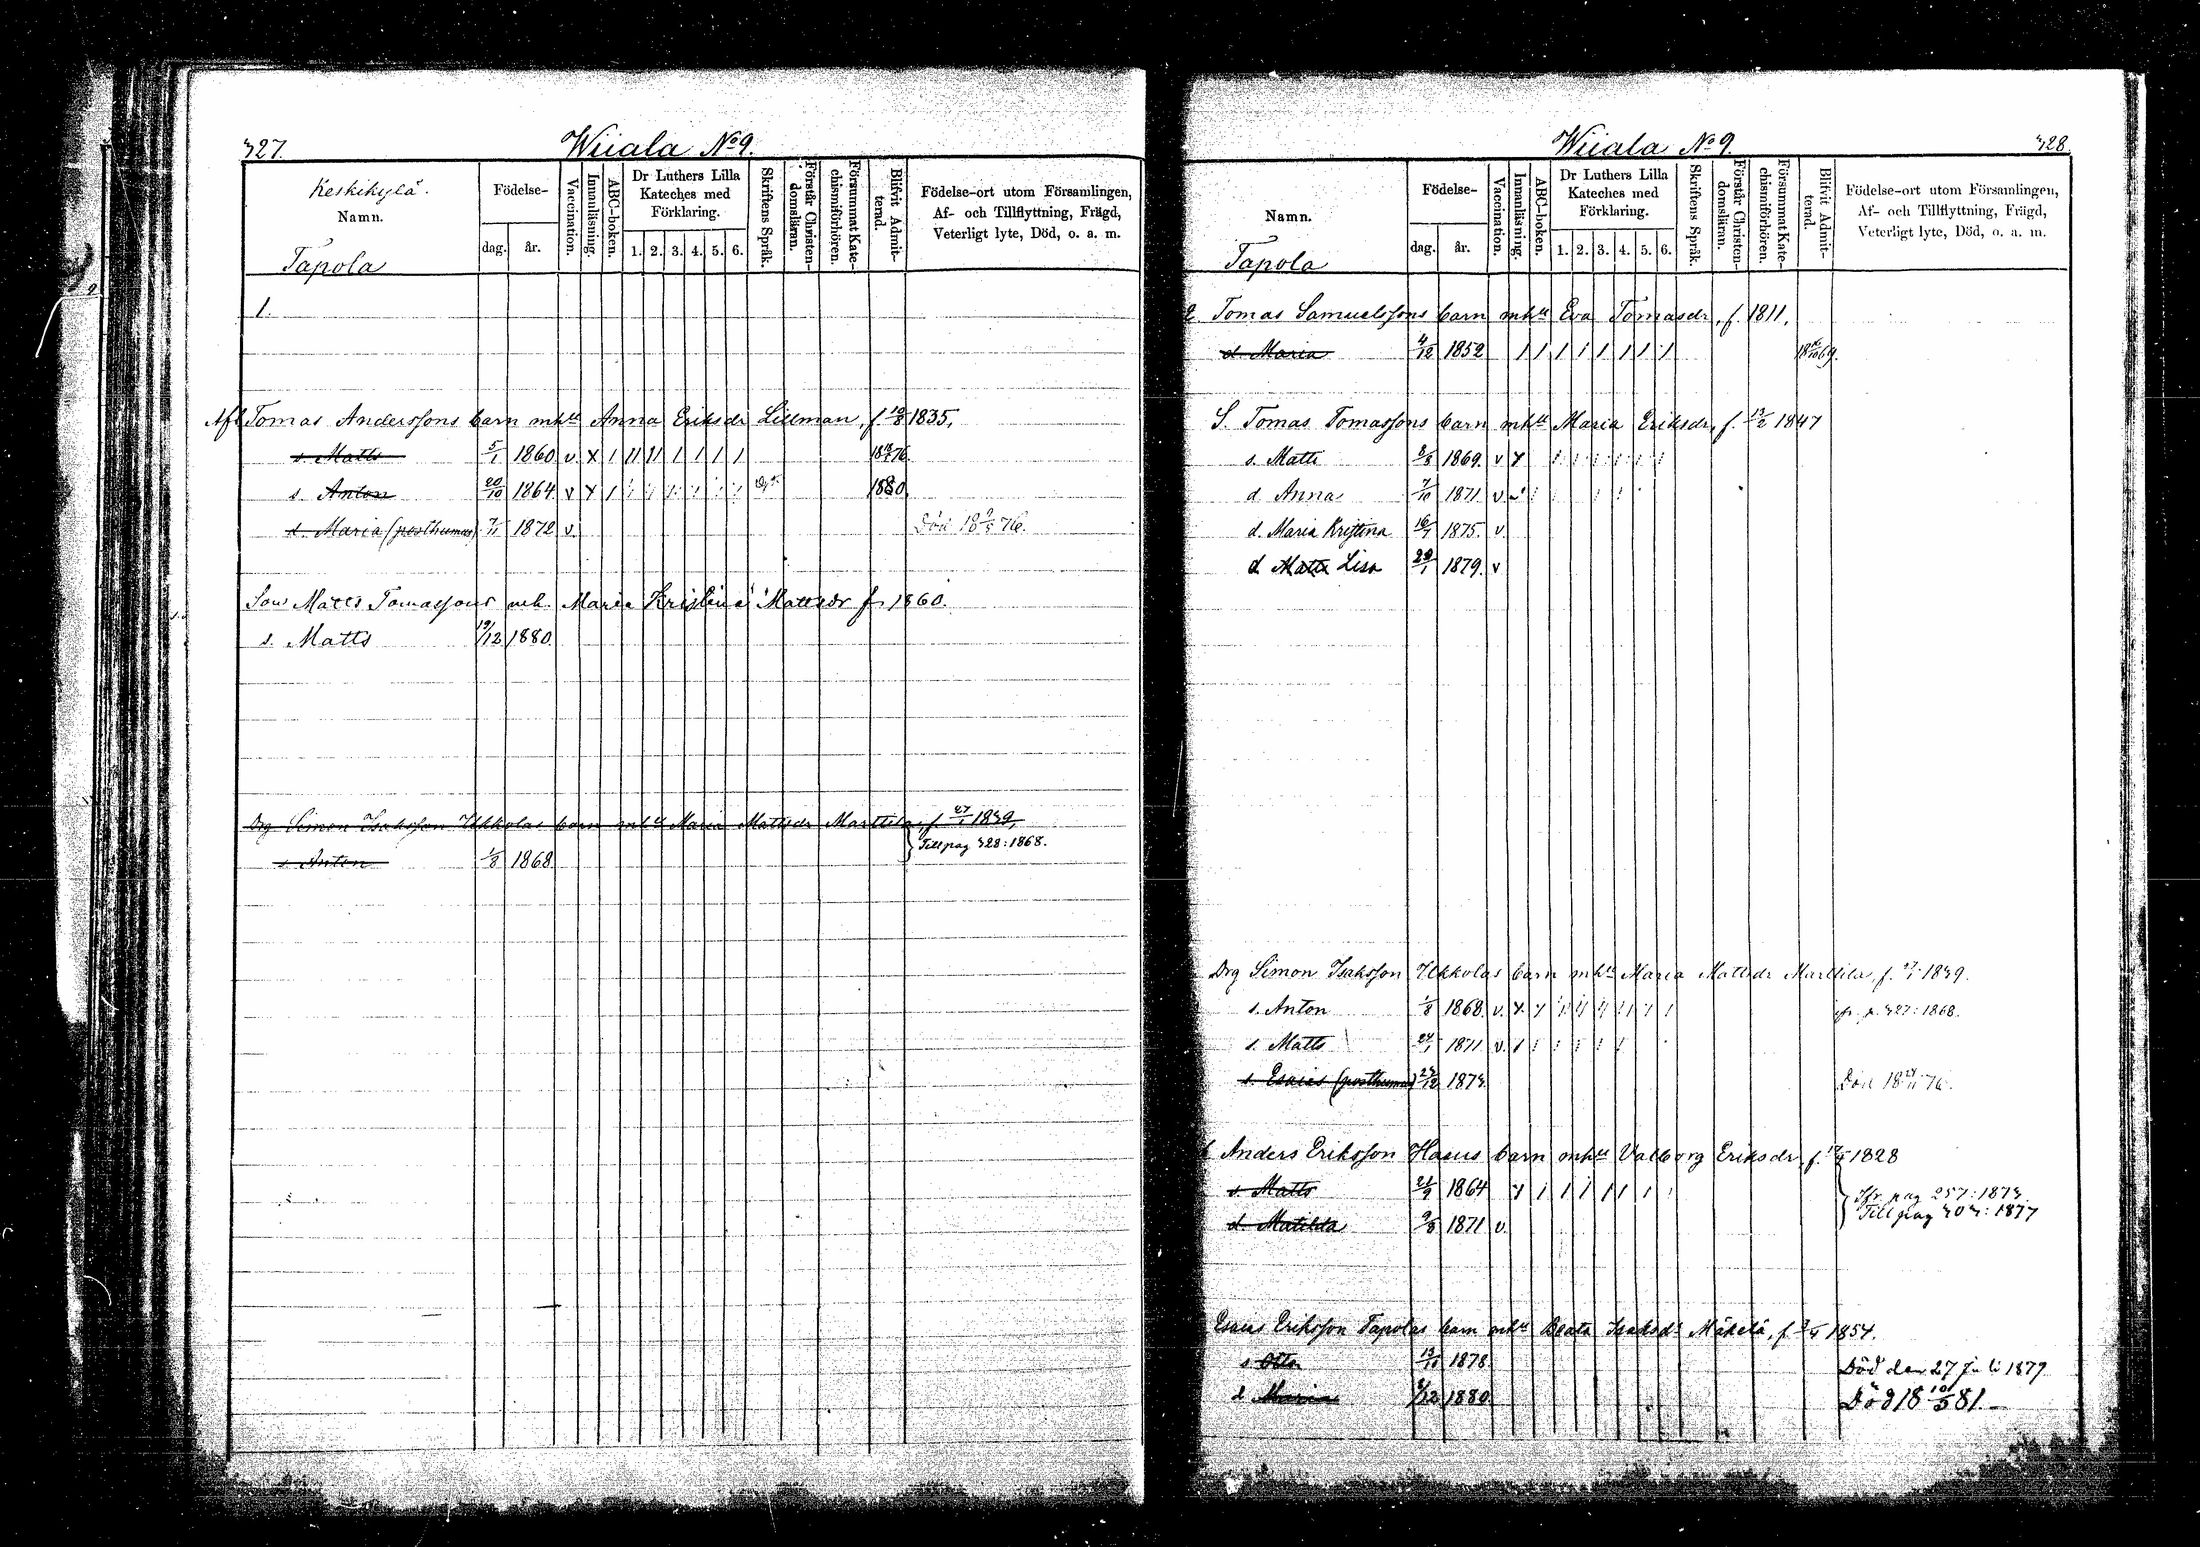 327.
Wiiala No 9.
Keskikylä.
Namn.
Tapola
Födelse-
dag. år.
Vaccination.
Innanläsning.
ABC-boken.
Dr Luthers Lilla
Kateches med
Förklaring.
1. 2. 3. 4. 5. 6.
Skriftens Språk.
Förstår Christen-
domsläran.
Försummat Kate-
chismiförhören.
Blifvit Admit-
terad.
Födelse-ort utom Församlingen,
Af- och Tillflyttning, Frägd,
Veterligt lyte, Död, o. a. m.
1.
Afl Tomas Anderssons barn mhu Anna Eriksdr Lillman, f. 10/8 1835,
s. Matts 5/1 1860 v. x 1 11 11 1 1 1 1
s Anton 20/10 1864 v x 1 1880
d. Maria (posthumus) 7/1 1872 v. Död 18 9/5 76.
Son Matts Tomassons mh. Maria Kristina Mattsdr f 1860.
s. Matts 19/12 1880.
Drg Simon Isaksson Ukkolas barn mhu Maria Mattsdr Marttila, f 27/1 1839,
s Anton 1/8 1868 Till pag 328:1868.
Wiiala No 9.
328.
Namn.
Tapola
Födelse-
dag. år.
Vaccination.
Innanläsning.
ABC-boken.
Dr Luthers Lilla
Kateches med
Förklaring.
1. 2. 3. 4. 5. 6.
Skriftens Språk.
Förstår Christen-
domsläran.
Försummat Kate-
chismiförhören.
Blifvit Admit-
terad.
Födelse-ort utom Församlingen,
Af- och Tillflyttning, Frägd,
Veterligt lyte, Död, o. a. m.
2. Tomas Samuelssons barn mhu Eva Tomasdr, f. 1811,
d Maria 4/12 1852 1 1 1 1 1 1 1 1
S. Tomas Tomassons barn mhu Maria Eriksdr, f. 13/2 1847
s. Matts 2/8 1869. v x
d Anna 7/10 1871 v
d. Maria Kristina 16/7 1875. v.
d Matts Lisa 29/1 1879. v
Drg Simon Isaksson Ukkolas barn mhu Maria Mattsdr Marttila, f. 27/1 1839.
s. Anton 1/8 1868. v. x. x fr. p. 327:1868.
s. Matts 24/1 1871 v. 1
s. Esaias (posthumus) 23/12 1873. Död 18 29/11 76.
Anders Eriksson Hasus barn mhu Valborg Eriksdr, f. 1828
s. Matts 21/9 1864 x 1 1 1 1 1 1 1 Ifr. pag 257:1873.
d. Matilda 9/8 1871 v. Till pag 303:1877
Esaias Eriksson Tapolas barn mhu Beata Isaksdr Mäkelä, f. 3/4 1854.
s Otto 13/10 1878. Död den 27 Juli 1879
d Maria 8/12 1880. Död 18 10/5 81.